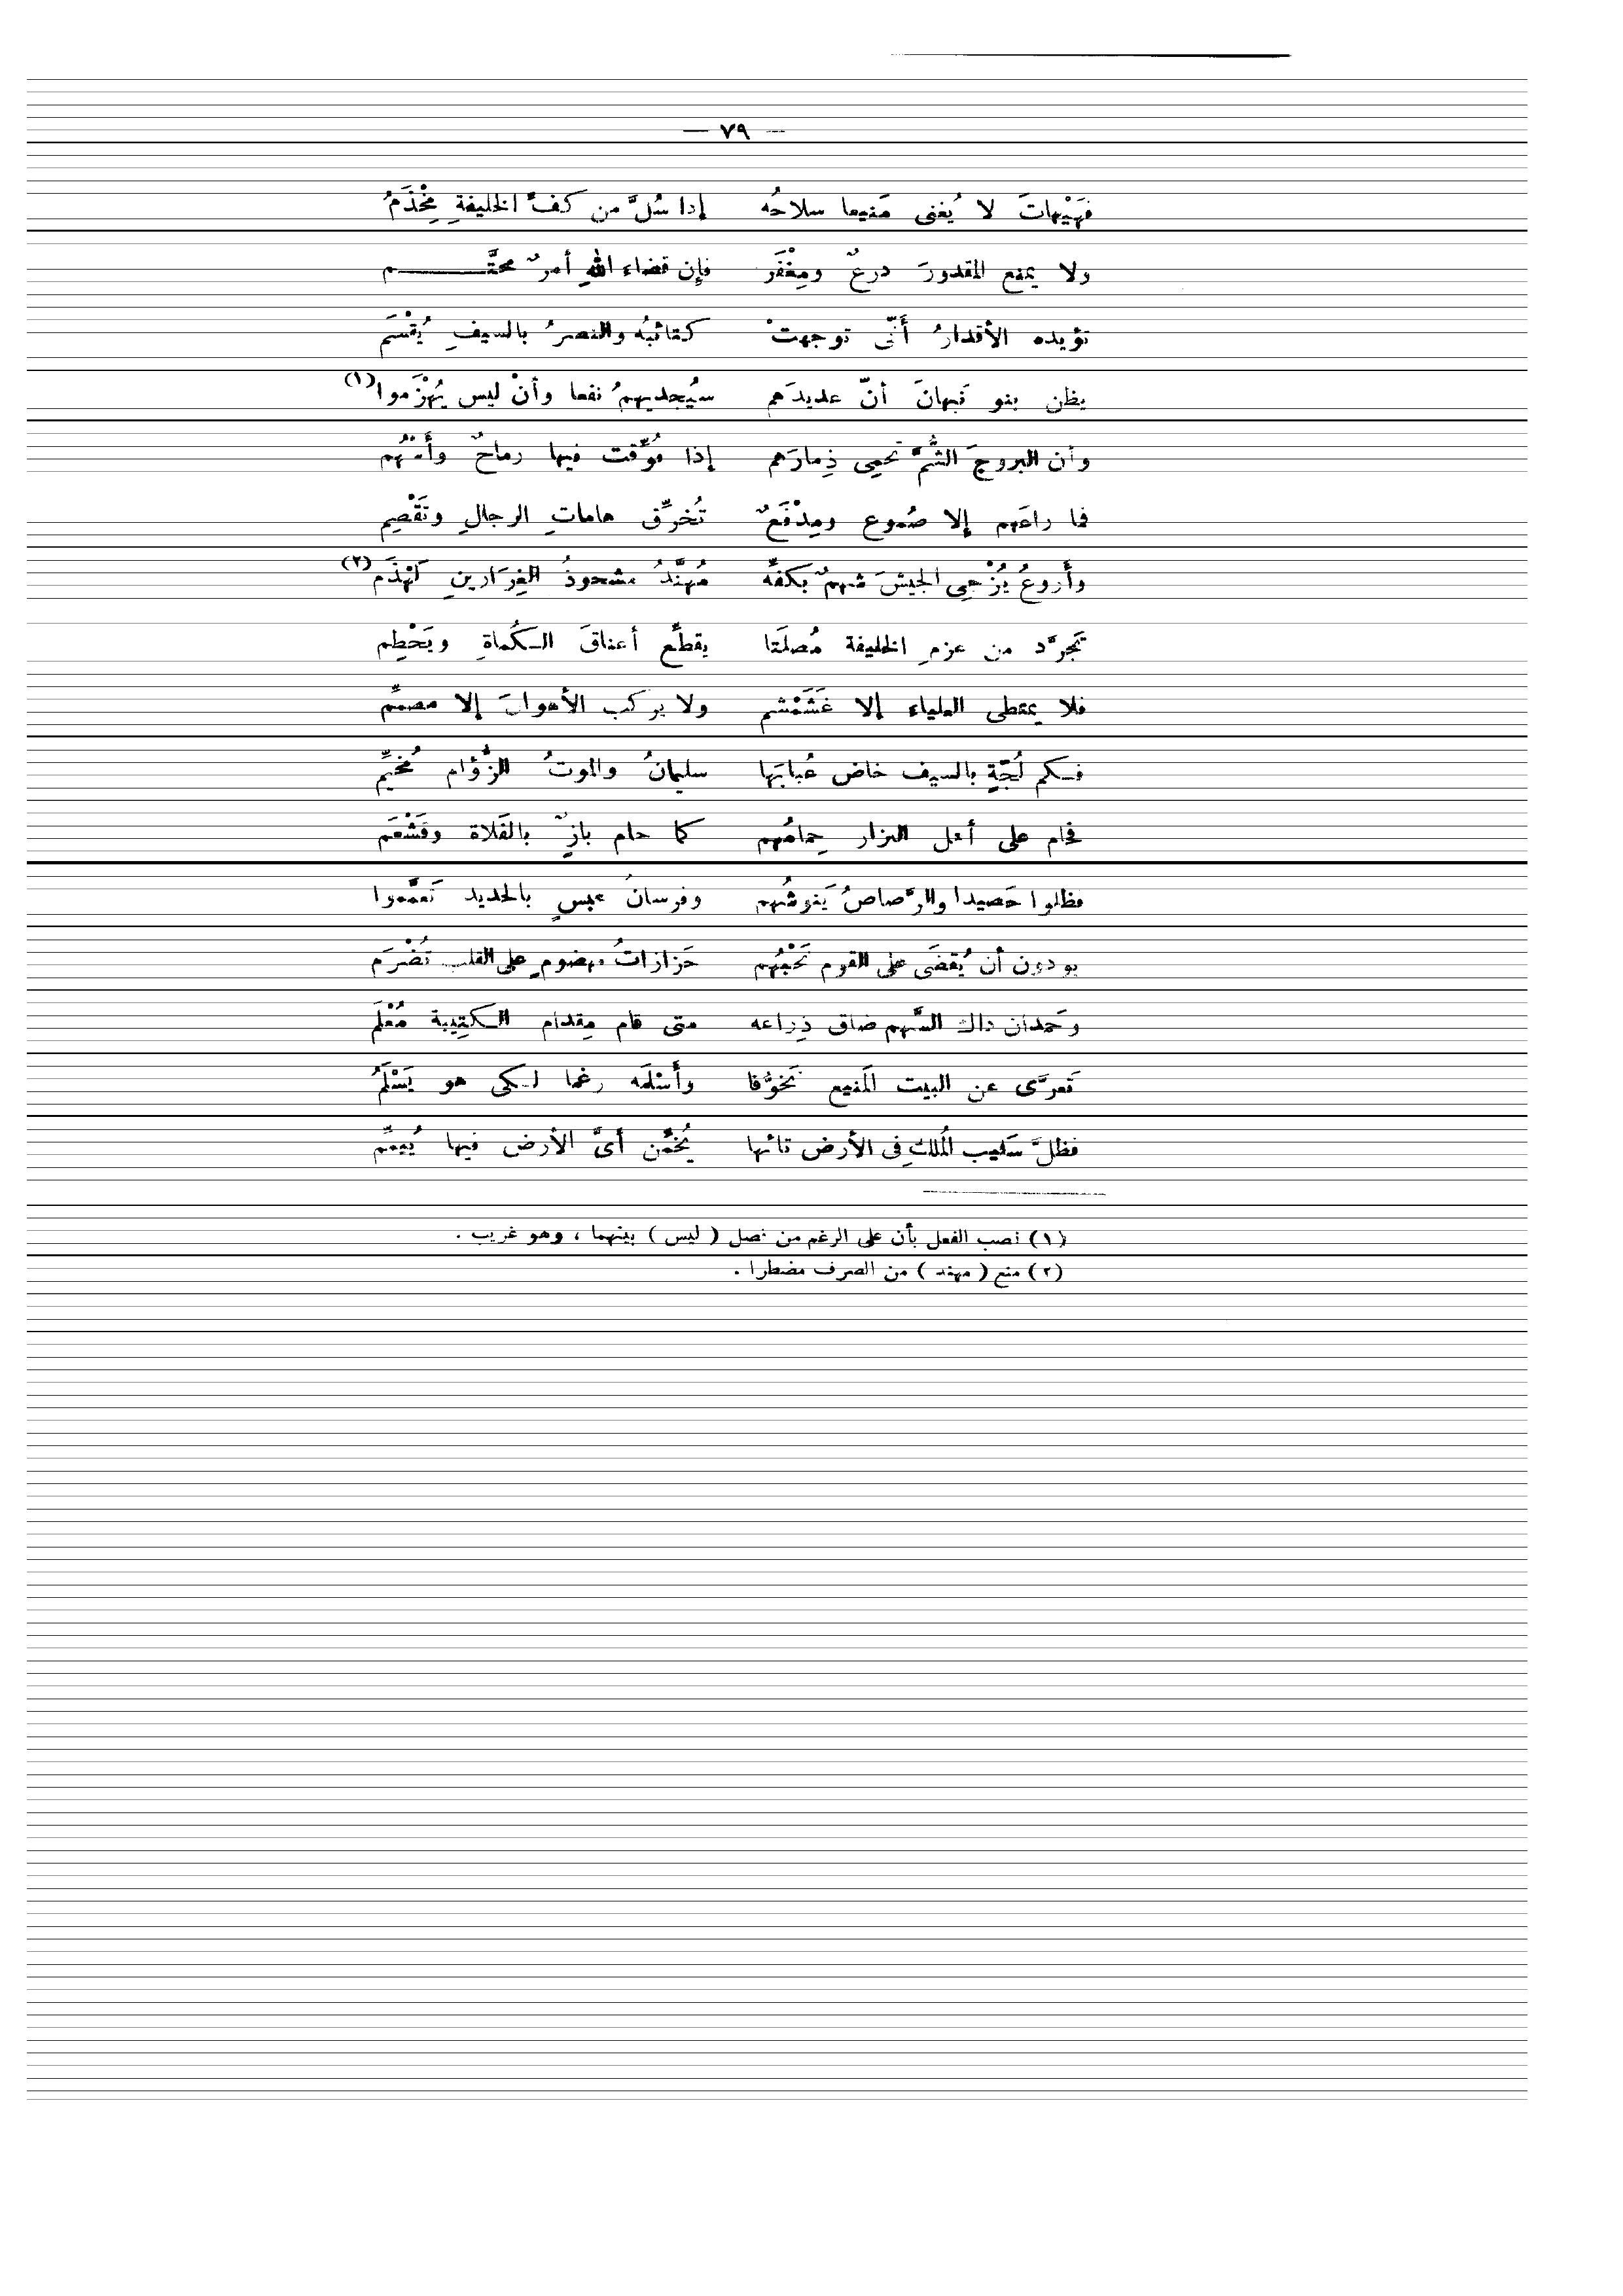 — ٧٩ —
فهَيْهاتَ لا يُغنى مَنيعا سلاحُه إذا سُلَّ من كفِّ الخليفةِ مِخْذَمُ
ولا يمنع المقدورَ درعٌ ومِغْفَر فإن قضاء اللهِ أمرٌ محتَّم
تؤيده الأقدارُ أَنَّى توجهتْ كتائبُه والنصرُ بالسيفِ يُقْسَم
يظن بنو نَبهانَ أنّ عديدَهم سيُجديهمُ نفعا وأنْ ليس يُهْزَموا(١)
وأن البروجَ الشُّمَّ تَحمِى ذِمارَهم إذا فُوِّقت فيها رماحٌ وأَسْهُم
فما راعَهم إلا صُموع ومِدْفَعٌ تُخرِّق هاماتِ الرجالِ وتَقْصِم
وأَروعُ يُزْجِى الجيشَ شهمٌ بكفِّه مُهنَّدُ مشحوذُ الغِرَارينِ لَهْذَم(٢)
تَجرَّد من عزمِ الخليفة مُصلَتا يقطِّع أعناقَ الكُماةِ ويَحْطِم
فلا يمتطى العلياء إلا غَشَمْشم ولا يركب الأهوالَ إلا مصمِّم
فكم لُجَّةٍ بالسيف خاض عُبابَها سليمانُ والموتُ الزُّؤام مُخيِّم
فحام على أهل النزار حِمامُهم كما حام بازٍ بالفَلاة وقَشْعَم
فظلوا حَصيدا والرَّصاصُ يَنوشُهم وفرسانُ عبسٍ بالحديد تَعمَّموا
يودون أن يُقضَى على القوم نَحْبُهم حَزازاتُ مهضومٍ على القلب تُضْرَم
وحَمدان ذاك السَّهم ضاق ذِراعه متى قام مِقدام الكتِيبة مُعْلَم
تَعرَّى عن البيت المَنيع تَخوُّفا وأَسْلَمَه رغما لكى هو يَسْلَمُ
فظلَّ سَليب المُلكِ فى الأرض تائها يُخمِّن أىَّ الأرض فيها يُيممِّ
(١) نصب الفعل بأن على الرغم من فصل ( ليس ) بينهما ، وهو غريب .
(٢) منع ( مهند ) من الصرف مضطرا .